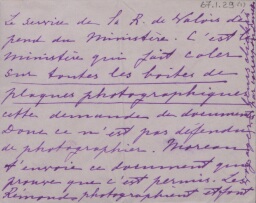 67.1.29 (1)
Le service de la R. de Valois dé
pend du Ministère. C'est le
ministère qui fait coler
sur toutes les boîtes de
plaques photographiques
cette demande de document
Donc ce n'est pas défendu
de photographier. Moreau
t'envoie ce document qui
prouve que c'est permis. Les
photographient et font